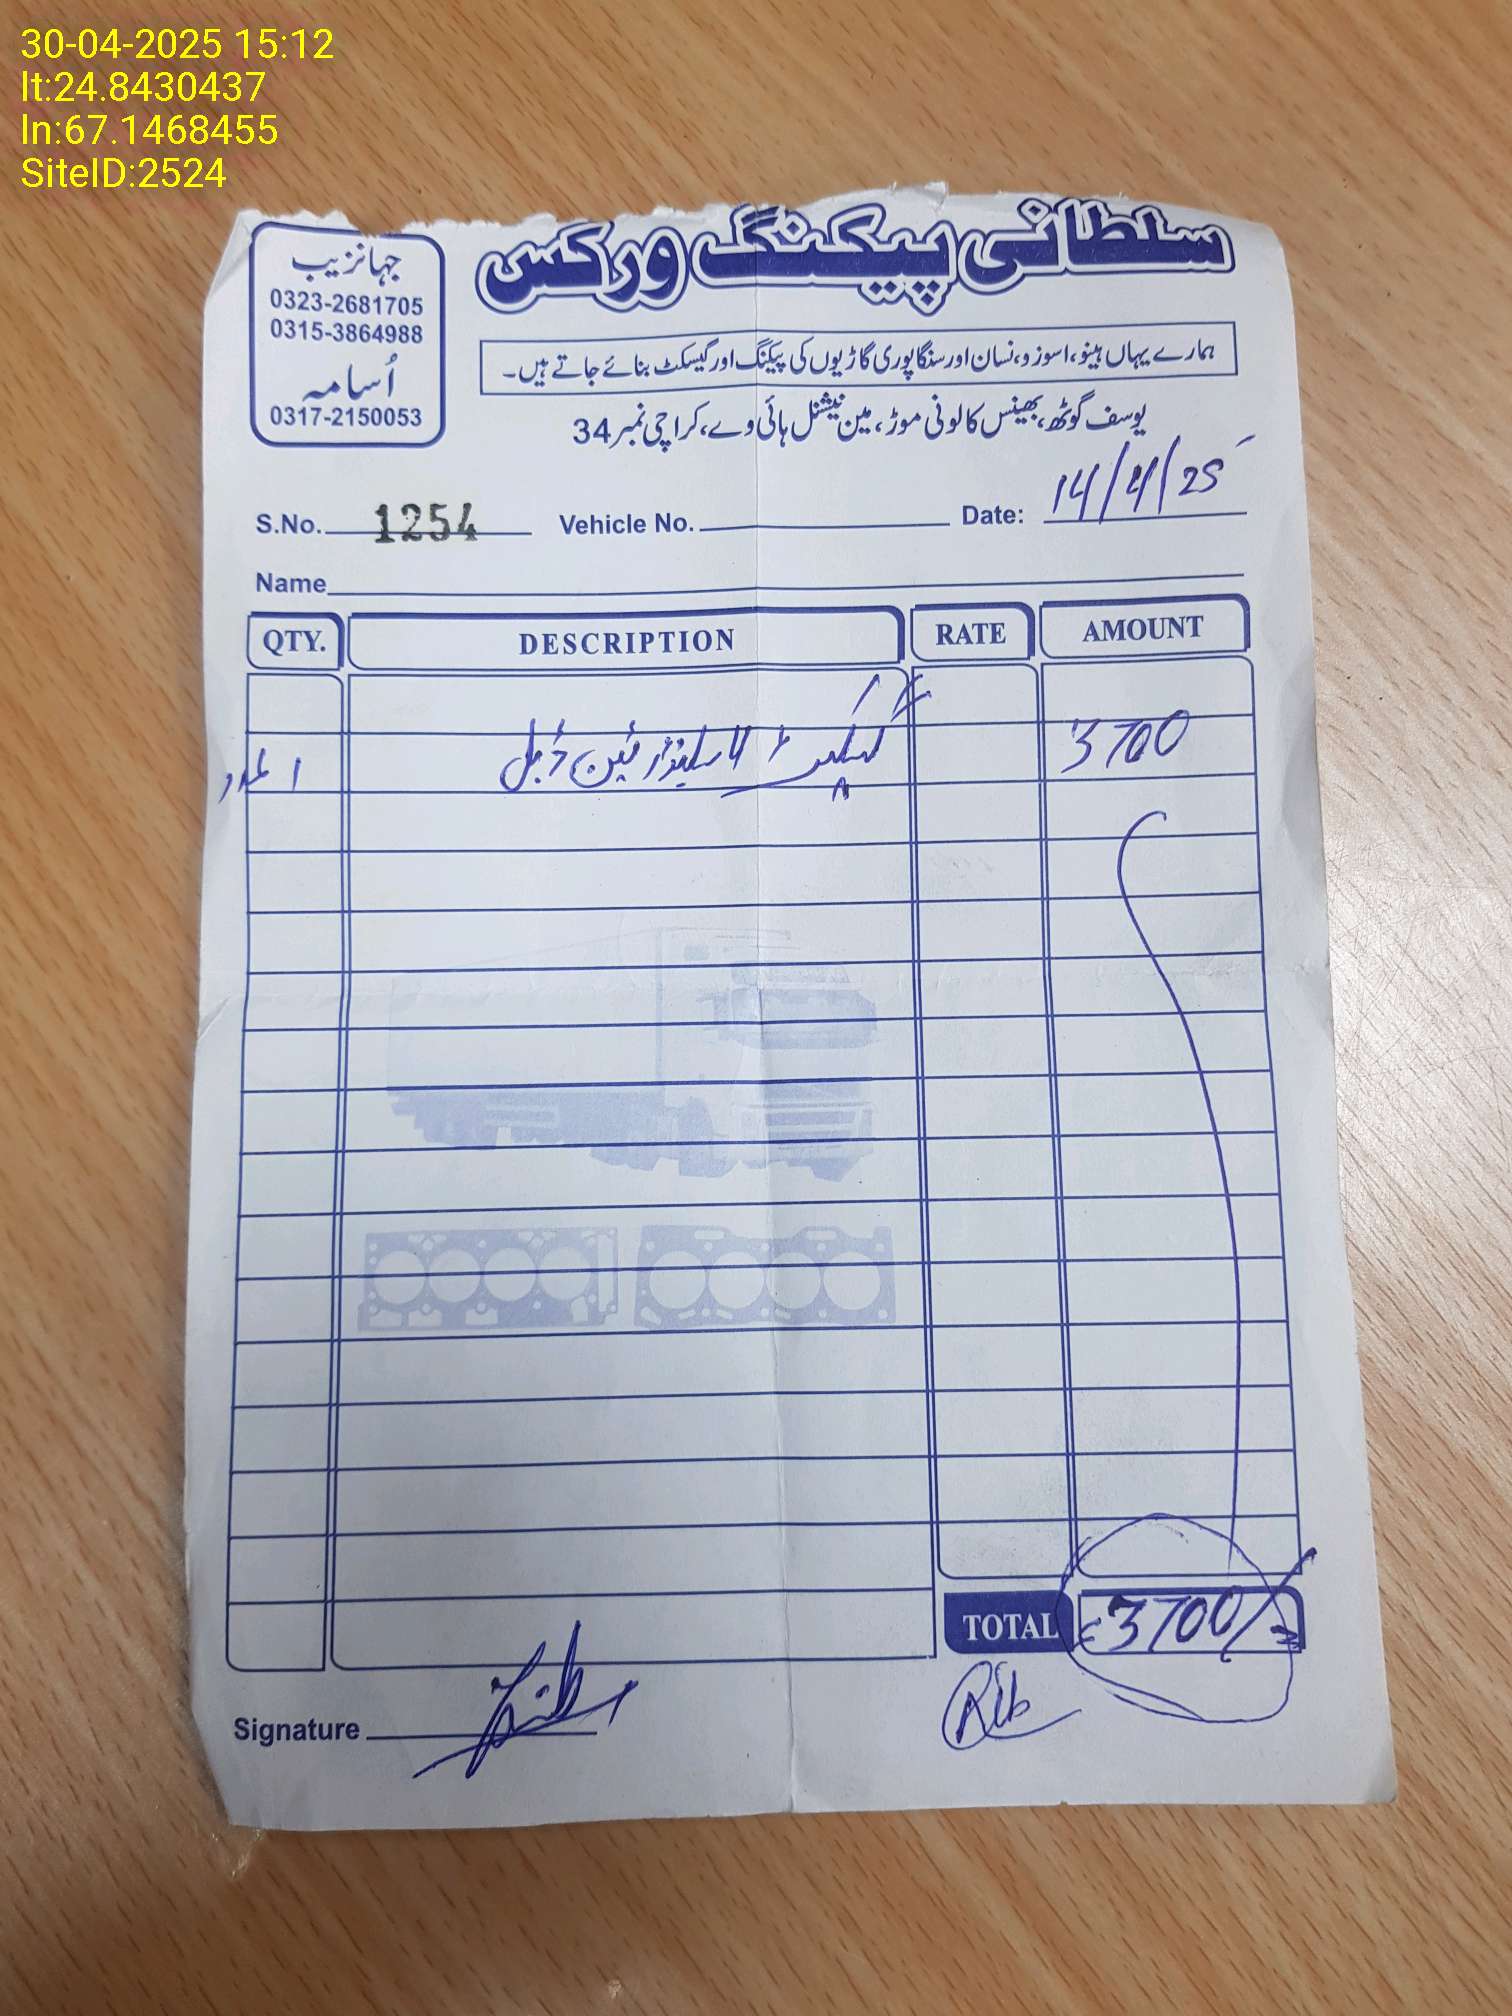 30-04-2025 15:12
lt:24.8430437
ln:67.1468455
SiteID:2524
سلطانی پیکنگ ورکس
جہانزیب
0323-2681705
0315-3864988
اُسامہ
0317-2150053
ہمارے یہاں ہینو، اسوزو، نسان اور سنگاپوری گاڑیوں کی پیکنگ اور گیسکٹ بنائے جاتے ہیں۔
یوسف گوٹھ، بھینس کالونی موڑ، مین نیشنل ہائی وے، کراچی نمبر 34
S.No. 1254 Vehicle No. Date: 14/4/25
Name
QTY. DESCRIPTION RATE AMOUNT
1 عدد سلینڈر ڈبل 3700
TOTAL 3700/=
Signature